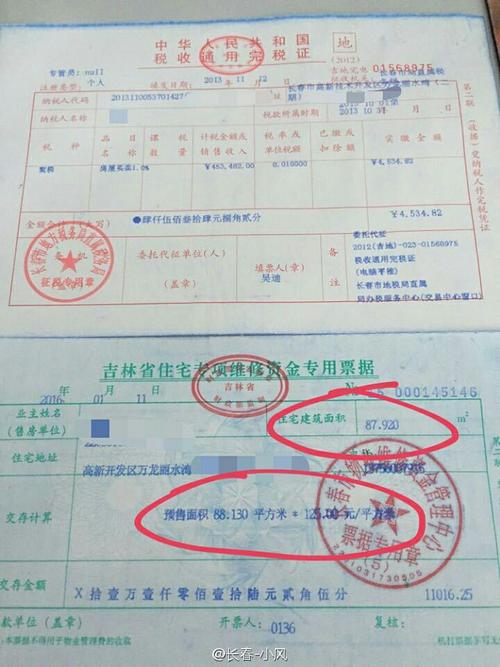 中华人民共和国
税收通用完税证
地
(2012)
吉地完电
01568975
专管员: null
填发日期
2013 11 12
征收机关
长春市地税局直属
注册类型:
个人
长春市高新技术开发区万龙丽水湾(二期)
纳税人代码
2013110053701427
纳税人名称
税款所属时期
2013 10 31
税 种
品 目 名 称
课 税 数 量
计税金额或 销售收入
税 率 或 单位税额
已 缴 或 扣 除 额
实 缴 金 额
契税
房屋买卖1.0%
¥453,482.00
0.010000
¥4,534.82
●肆仟伍佰叁拾肆元捌角贰分
¥4,534.82
长春市地方税务局直属
征税专用章
委托代征单位(人)
(盖章)
填票人(章)
吴迪
备注
委托代征
2012(吉地)-023-01568975
税收通用完税证
(电脑平推)
长春市地税局直属
局办税服务中心(交易中心窗口)
第二联(收据)交纳税人作完税凭证
吉林省住宅专项维修资金专用票据
吉林省
2016 年 01 月 11 日
No 000145146
业主姓名
(售房单位)
住宅建筑面积
87.920
m²
住宅地址
高新开发区万龙丽水湾
交存计算
预售面积 88.130 平方米 * 125.00 元/平方米
票据专用章
(5)
交存金额
X 拾壹万壹仟零佰壹拾陆元贰角伍分
11016.25
收款单位(章):
开票人: 0136
复核:
本票据不得用于物业管理费的收取
机打票据手写无效
@长春-小风